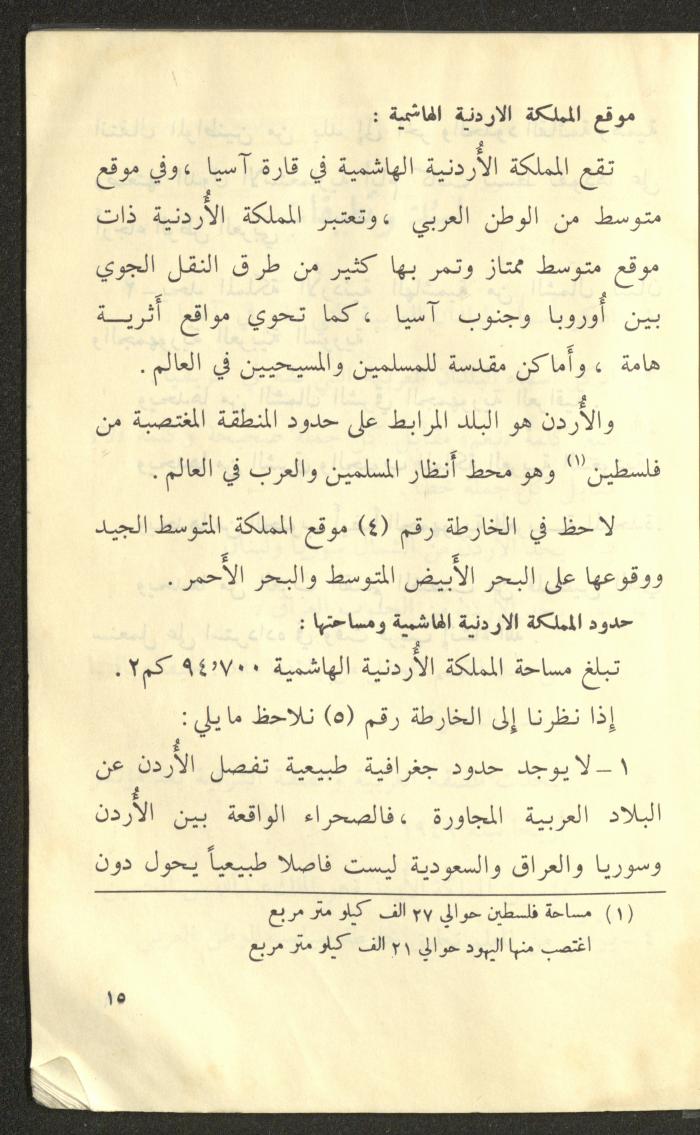 موقع المملكة الاردنية الهاشمية :
تقع المملكة الأُردنية الهاشمية في قارة آسيا ، وفي موقع
متوسط من الوطن العربي ، وتعتبر المملكة الأُردنية ذات
موقع متوسط ممتاز وتمر بها كثير من طرق النقل الجوي
بين أُوروبا وجنوب آسيا ، كما تحوي مواقع أَثريــة
هامة ، وأَماكن مقدسة للمسلمين والمسيحيين في العالم .
والأُردن هو البلد المرابط على حدود المنطقة المغتصبة من
فلسطين(١) وهو محط أَنظار المسلمين والعرب في العالم .
لاحظ في الخارطة رقم (٤) موقع المملكة المتوسط الجيد
ووقوعها على البحر الأَبيض المتوسط والبحر الأَحمر .
حدود المملكة الاردنية الهاشمية ومساحتها :
تبلغ مساحة المملكة الأُردنية الهاشمية ٩٤٫٧٠٠ كم٢ .
إِذا نظرنا إِلى الخارطة رقم (٥) نلاحظ مايلي :
١ – لا يوجد حدود جغرافية طبيعية تفصل الأُردن عن
البلاد العربية المجاورة ، فالصحراء الواقعة بين الأُردن
وسوريا والعراق والسعودية ليست فاصلا طبيعياً يحول دون
(١) مساحة فلسطين حوالي ٢٧ الف كيلو متر مربع
اغتصب منها اليهود حوالي ٢١ الف كيلو متر مربع
١٥